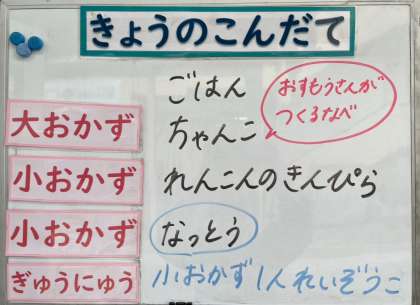 きょうのこんだて
ごはん
おすもうさんが
つくるなべ
大おかず ちゃんこ
小おかず れんこんのきんぴら
小おかず なっとう
ぎゅうにゅう 小おかず1人れいぞうこ